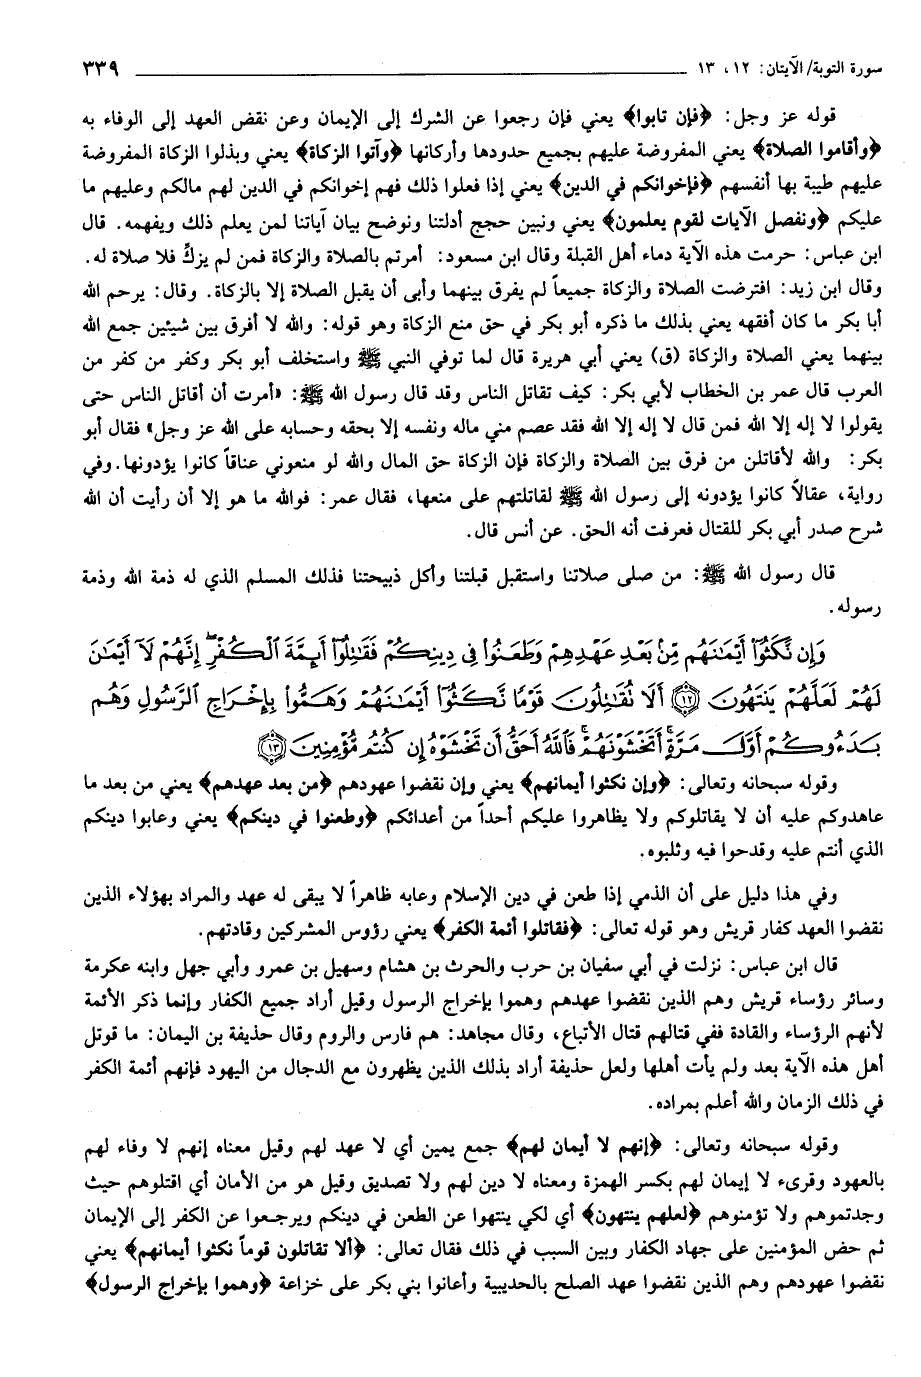 سورة التوبة/ الآيتان: ١٢، ١٣ ٣٣٩
قوله عز وجل: ﴿فإن تابوا﴾ يعني فإن رجعوا عن الشرك إلى الإيمان وعن نقض العهد إلى الوفاء به
﴿وأقاموا الصلاة﴾ يعني المفروضة عليهم بجميع حدودها وأركانها ﴿وآتوا الزكاة﴾ يعني وبذلوا الزكاة المفروضة
عليهم طيبة بها أنفسهم ﴿فإخوانكم في الدين﴾ يعني إذا فعلوا ذلك فهم إخوانكم في الدين لهم مالكم وعليهم ما
عليكم ﴿ونفصل الآيات لقوم يعلمون﴾ يعني ونبين حجج أدلتنا ونوضح بيان آياتنا لمن يعلم ذلك ويفهمه. قال
ابن عباس: حرمت هذه الآية دماء أهل القبلة وقال ابن مسعود: أمرتم بالصلاة والزكاة فمن لم يزكِّ فلا صلاة له.
وقال ابن زيد: افترضت الصلاة والزكاة جميعاً لم يفرق بينهما وأبى أن يقبل الصلاة إلا بالزكاة. وقال: يرحم الله
أبا بكر ما كان أفقهه يعني بذلك ما ذكره أبو بكر في حق منع الزكاة وهو قوله: والله لا أفرق بين شيئين جمع الله
بينهما يعني الصلاة والزكاة (ق) يعني أبي هريرة قال لما توفي النبي ﷺ واستخلف أبو بكر وكفر من كفر من
العرب قال عمر بن الخطاب لأبي بكر: كيف تقاتل الناس وقد قال رسول الله ﷺ: «أمرت أن أقاتل الناس حتى
يقولوا لا إله إلا الله فمن قال لا إله إلا الله فقد عصم مني ماله ونفسه إلا بحقه وحسابه على الله عز وجل» فقال أبو
بكر: والله لأقاتلن من فرق بين الصلاة والزكاة فإن الزكاة حق المال والله لو منعوني عناقاً كانوا يؤدونها. وفي
رواية، عقالاً كانوا يؤدونه إلى رسول الله ﷺ لقاتلتهم على منعها، فقال عمر: فوالله ما هو إلا أن رأيت أن الله
شرح صدر أبي بكر للقتال فعرفت أنه الحق. عن أنس قال.
قال رسول الله ﷺ: من صلى صلاتنا واستقبل قبلتنا وأكل ذبيحتنا فذلك المسلم الذي له ذمة الله وذمة
رسوله.
وَإِن نَّكَثُوٓا۟ أَيْمَٰنَهُم مِّنۢ بَعْدِ عَهْدِهِمْ وَطَعَنُوا۟ فِى دِينِكُمْ فَقَٰتِلُوٓا۟ أَئِمَّةَ ٱلْكُفْرِ ۙ إِنَّهُمْ لَآ أَيْمَٰنَ
لَهُمْ لَعَلَّهُمْ يَنتَهُونَ ﴿١٢﴾ أَلَا تُقَٰتِلُونَ قَوْمًا نَّكَثُوٓا۟ أَيْمَٰنَهُمْ وَهَمُّوا۟ بِإِخْرَاجِ ٱلرَّسُولِ وَهُم
بَدَءُوكُمْ أَوَّلَ مَرَّةٍ ۚ أَتَخْشَوْنَهُمْ ۚ فَٱللَّهُ أَحَقُّ أَن تَخْشَوْهُ إِن كُنتُم مُّؤْمِنِينَ ﴿١٣﴾
وقوله سبحانه وتعالى: ﴿وإن نكثوا أيمانهم﴾ يعني وإن نقضوا عهودهم ﴿من بعد عهدهم﴾ يعني من بعد ما
عاهدوكم عليه أن لا يقاتلوكم ولا يظاهروا عليكم أحداً من أعدائكم ﴿وطعنوا في دينكم﴾ يعني وعابوا دينكم
الذي أنتم عليه وقدحوا فيه وثلبوه.
وفي هذا دليل على أن الذمي إذا طعن في دين الإسلام وعابه ظاهراً لا يبقى له عهد والمراد بهؤلاء الذين
نقضوا العهد كفار قريش وهو قوله تعالى: ﴿فقاتلوا أئمة الكفر﴾ يعني رؤوس المشركين وقادتهم.
قال ابن عباس: نزلت في أبي سفيان بن حرب والحرث بن هشام وسهيل بن عمرو وأبي جهل وابنه عكرمة
وسائر رؤساء قريش وهم الذين نقضوا عهدهم وهموا بإخراج الرسول وقيل أراد جميع الكفار وإنما ذكر الأئمة
لأنهم الرؤساء والقادة ففي قتالهم قتال الأتباع، وقال مجاهد: هم فارس والروم وقال حذيفة بن اليمان: ما قوتل
أهل هذه الآية بعد ولم يأت أهلها ولعل حذيفة أراد بذلك الذين يظهرون مع الدجال من اليهود فإنهم أئمة الكفر
في ذلك الزمان والله أعلم بمراده.
وقوله سبحانه وتعالى: ﴿إنهم لا أيمان لهم﴾ جمع يمين أي لا عهد لهم وقيل معناه إنهم لا وفاء لهم
بالعهود وقرىء لا إيمان لهم بكسر الهمزة ومعناه لا دين لهم ولا تصديق وقيل هو من الأمان أي اقتلوهم حيث
وجدتموهم ولا تؤمنوهم ﴿لعلهم ينتهون﴾ أي لكي ينتهوا عن الطعن في دينكم ويرجعوا عن الكفر إلى الإيمان
ثم حض المؤمنين على جهاد الكفار وبين السبب في ذلك فقال تعالى: ﴿ألا تقاتلون قوماً نكثوا أيمانهم﴾ يعني
نقضوا عهودهم وهم الذين نقضوا عهد الصلح بالحديبية وأعانوا بني بكر على خزاعة ﴿وهموا بإخراج الرسول﴾